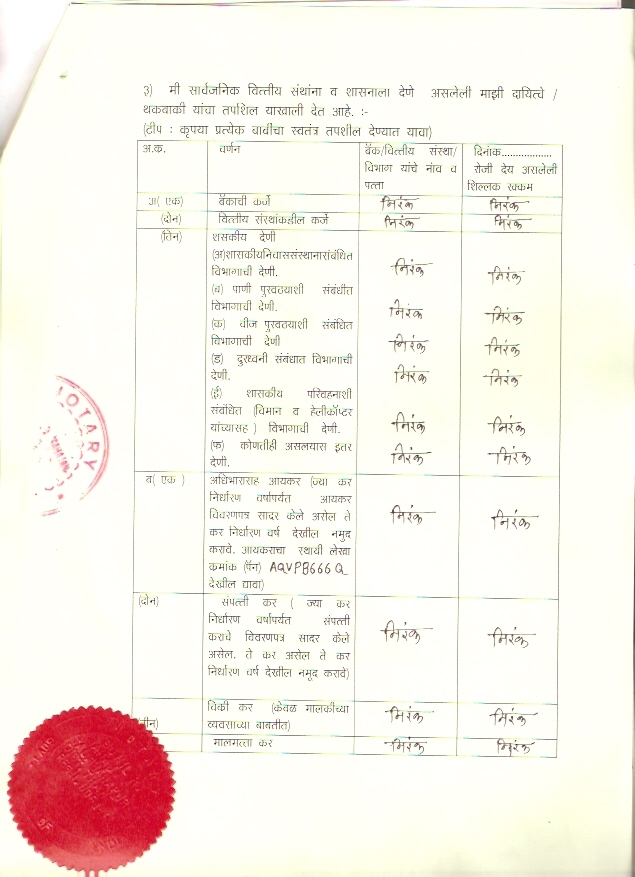 3) मी सार्वजनिक वित्तीय संथांना व शासनाला देणे असलेली माझी दायित्वे /
थकबाकी यांचा तपशिल याखाली देत आहे. :-
(टीप : कृपया प्रत्येक बाबीचा स्वतंत्र तपशील देण्यात यावा)
अ.क. वर्णन बॅक/वित्तीय संस्था/ दिनांक..................
विभाग यांचे नांव व रोजी देय असलेली
पत्ता शिल्लक रक्कम
अ( एक) बॅकाची कर्जे निरंक निरंक
(दोन) वित्तीय संस्थांकडील कर्जे निरंक निरंक
(तिन) शसकीय देणी
(अ)शासकीयनिवाससंस्थानासंबंधित
विभागाची देणी. निरंक निरंक
(ब) पाणी पुरवठयाशी संबंधीत
विभागाची देणी. निरंक निरंक
(क) वीज पुरवतयाशी संबंधित
विभागाची देणी निरंक निरंक
(ड) दुरध्वनी संबंधात विभागाची
देणी. निरंक निरंक
(ई) शासकीय परिवहनाशी
संबंधित (विमान व हेलीकॉप्टर
यांच्यासह ) विभागाची देणी. निरंक निरंक
(फ) कोणतीही असलयास इतर
देणी. निरंक निरंक
ब( एक ) अधिभारासह आयकर (ज्या कर
निर्धारण वर्षापर्यत आयकर
विवरणपत्र सादर केले असेल ते
कर निर्धारण वर्ष देखील नमुद
करावे. आयकराचा स्थायी लेखा
कमांक (पॅन) AQVPB666Q
देखील द्यावा) निरंक निरंक
(दोन) संपत्ती कर ( ज्या कर
निर्धारण वर्षापर्यत संपत्ती
कराचे विवरणपत्र सादर केले
असेल. ते कर असेल ते कर
निर्धारण वर्ष देखील नमुद करावे) निरंक निरंक
विकी कर (केवळ मालकीच्या
(तीन) व्यवसाच्या बाबतीत) निरंक निरंक
मालमत्ता कर निरंक निरंक
NOTARY